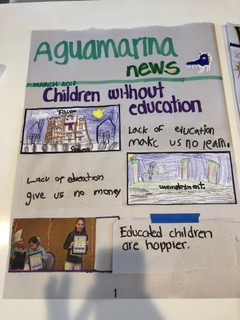 Aguamarina
news
MARCH 2018
Children without
education
Lack of education
make us no learn.
Lack of education
give us no money
unemployment.
Educated children
are happier.
1